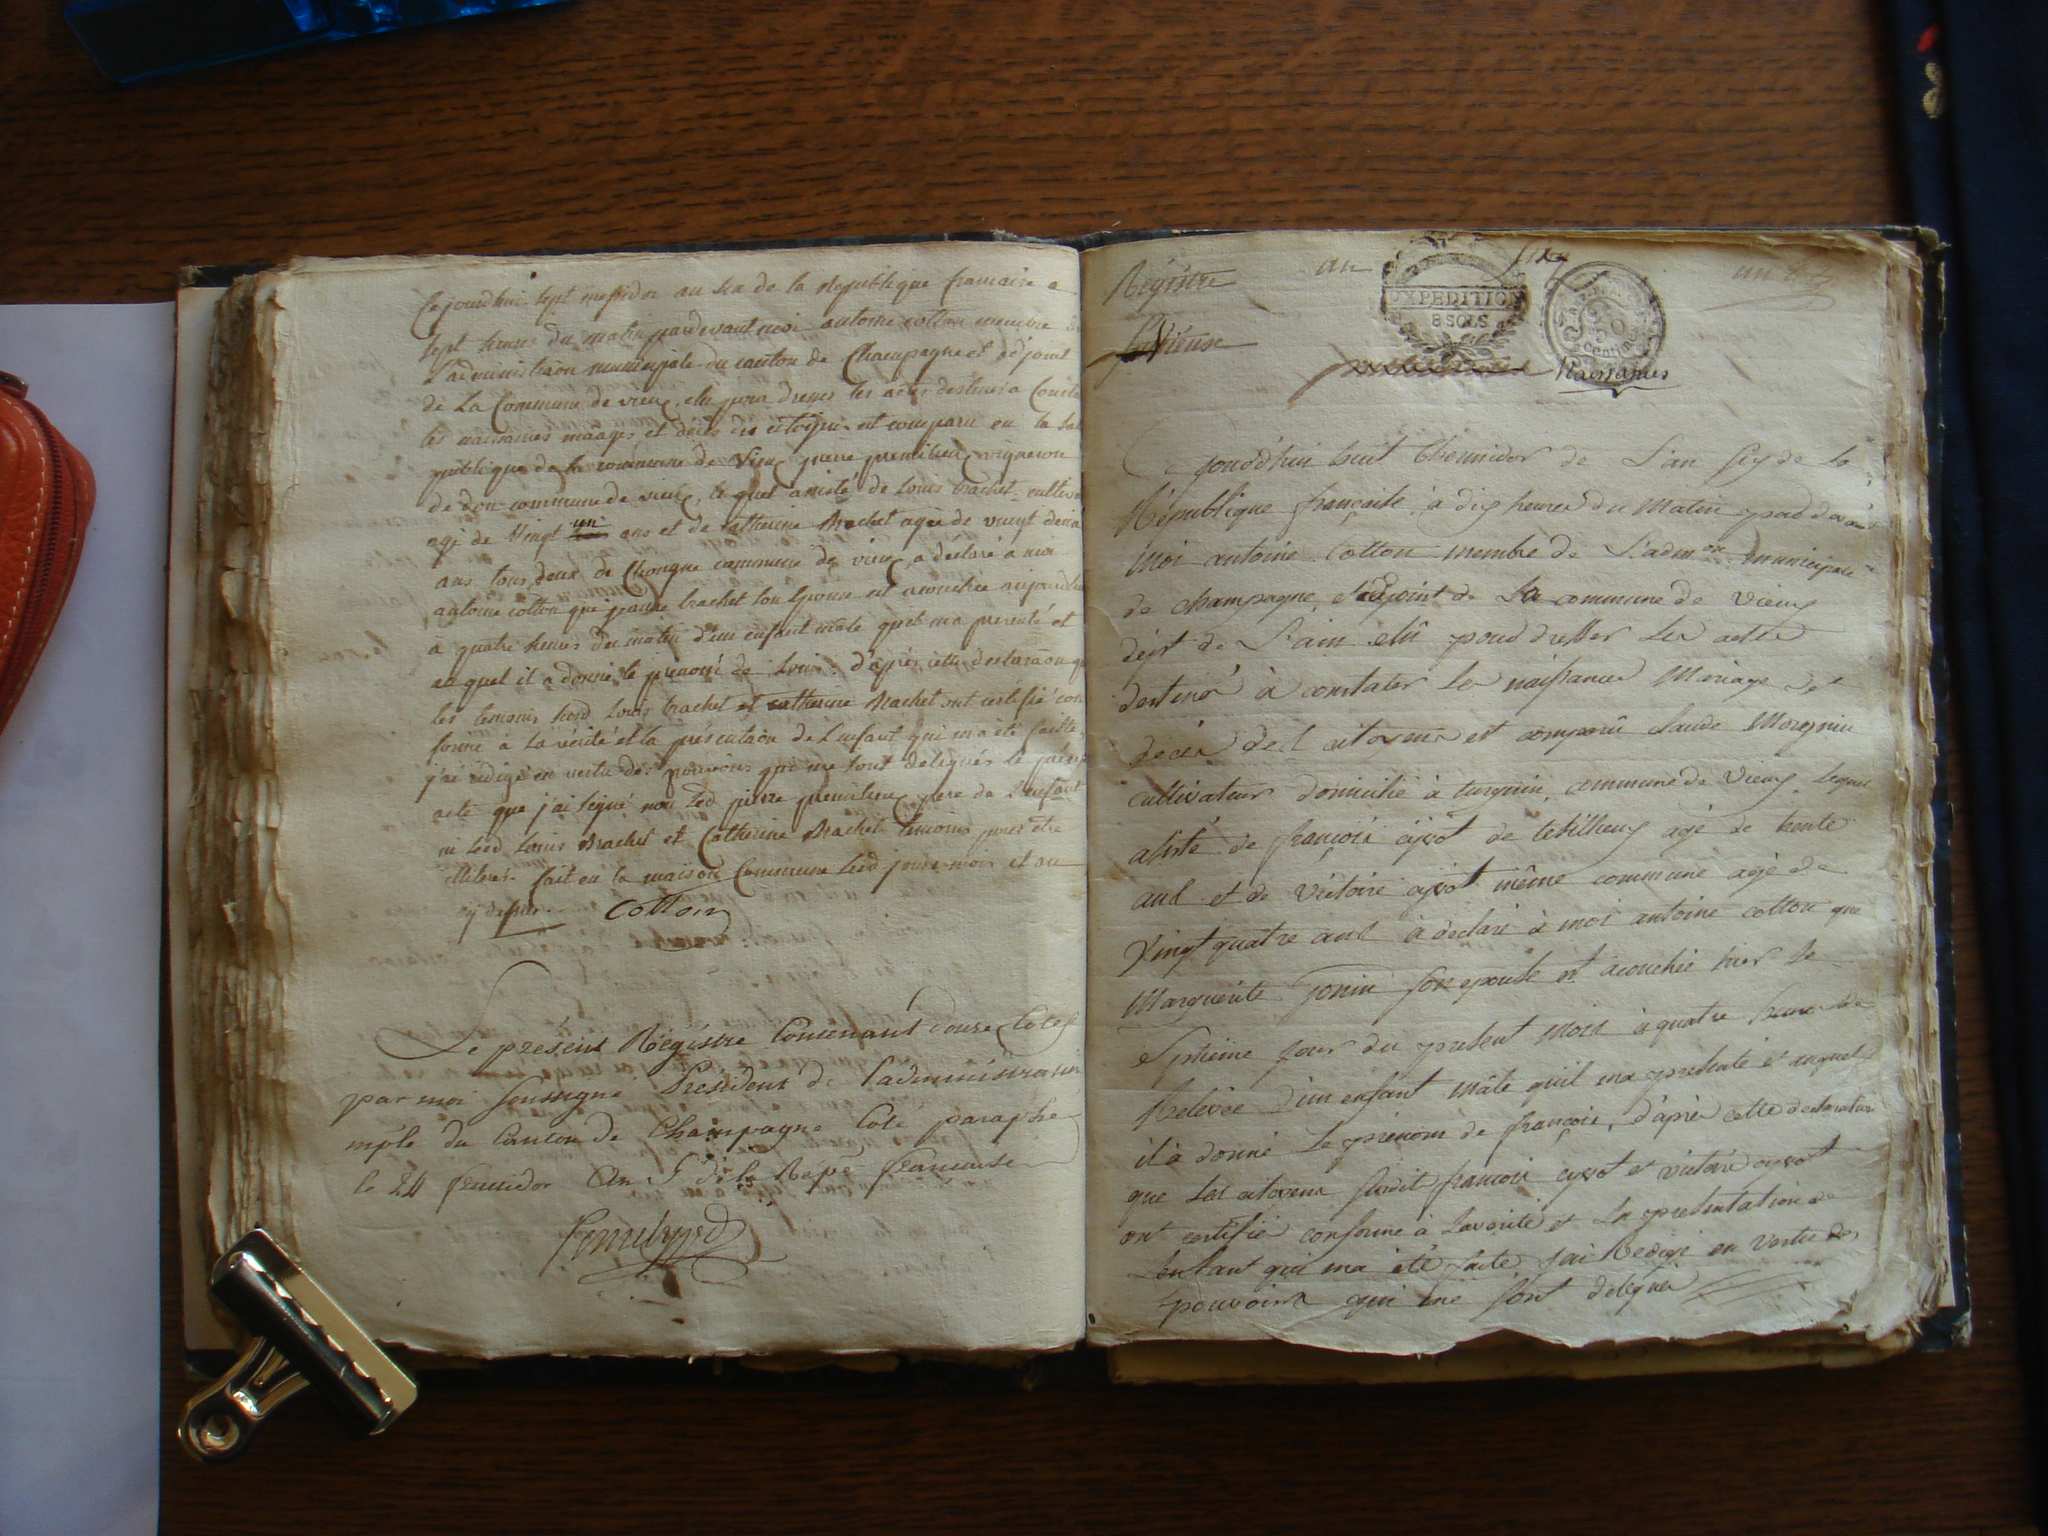 Cejourdhui sept messidor an six de la republique francaise a
sept heures du matin pardevant moi antoine cotton membre de
L'administraon municipale du canton de Champagne et adjoint
de La Commune de vieux, elu pour dresser les actes destinés a Consta
les naissances mariages et décès des citoyens est comparu en la sal
publique de la commune de Vieu pierre vigneron
de don commune de vieux, le quel assisté de Louis brachet cultiva
agé de Vingt un ans et de catherine Brachet agée de vingt deux
ans tous deux de Chongne commune de vieux, a déclaré a moi
antoine cotton que brachet son Epouse est acouchée aujourdhui
à quatre heures du matin d'un enfant male qu'il ma presenté et
au quel il a donné le prenom de Louis. d'après cette declaraon que
les temoins susd Louis brachet et catherine Brachet ont certifié con
forme à la vérité et la présentaon de L'enfant qui m'a été faitte,
j'ai rédigé en vertu des pouvoirs qui me sont délégués le présent
acte que j'ai signé non Led pierre pere de L'enfant
ni Lesd Louis Brachet et Catherine Brachet temoins pour être
illitérés. fait en la maison Commune Lesd jour mois et an
cy dessus. Cotton
Le présent Régistre Contenant douse Cotes
par moi soussigné Président de l'administraon
mple du Canton de Champagne Coté paraphé
le 24 An 5 de la Repe francaise
Régistre an six
De Vieux
EXPEDITION
8 SOLS
Centimes
Naissances
Ce Jourd'hui huit thermidor de L'an six de La
République française, à dix heures du Matin pardevant
Moi antoine Cotton membre de L'admon municipale
de champagne, et adjoint de La commune de Vieux
dépt de L'ain elû pour dresser Les actes
destinés à constater Les naissances Mariages et
décès des citoyens est comparû Claude
cultivateur domicilié à commune de Vieux, lequel
assisté de françois ayot de agé de trente
ans et de Victoire ayot même commune agée de
Vingt quatre ans à déclaré à moi antoine cotton que
Marguerite Jonin son epouse est acouchée hier Le
Septième jour du present Mois à quatre heures de
Relevée D'un enfant mâle qu'il ma presenté et auquel
il à donné Le prénom de françois, d'après cette declaration
que Les citoyens françois ayot et victoire ayot
ont certifié conforme à La verité et La presentation de
L'enfant qui ma été faite, J'ai Redigé en vertu des
pouvoirs qui me sont délégués